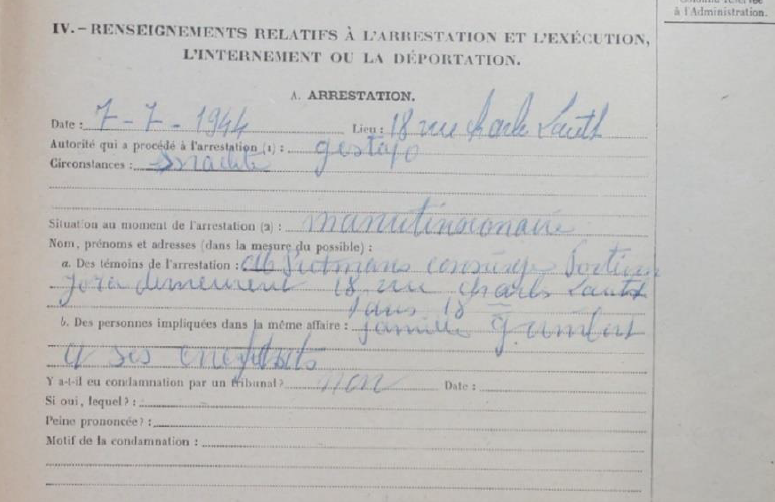 Colonne réservée
à l'Administration.
IV. - RENSEIGNEMENTS RELATIFS À L'ARRESTATION ET L'EXÉCUTION,
L'INTERNEMENT OU LA DÉPORTATION.
A. ARRESTATION.
Date : 7 - 7 - 1944 Lieu : 18 rue Charle Lauth
Autorité qui a procédé à l'arrestation (1) : gestapo
Circonstances :
Situation au moment de l'arrestation (2) : manutinsconaire
Nom, prénoms et adresses (dans la mesure du possible) :
a. Des témoins de l'arrestation : Putmans consierge
demeurent 18 rue Charles Lauth
Paris 18
b. Des personnes impliquées dans la même affaire : famille
a ses
Y a-t-il eu condamnation par un tribunal ? non Date :
Si oui, lequel ? :
Peine prononcée ? :
Motif de la condamnation :